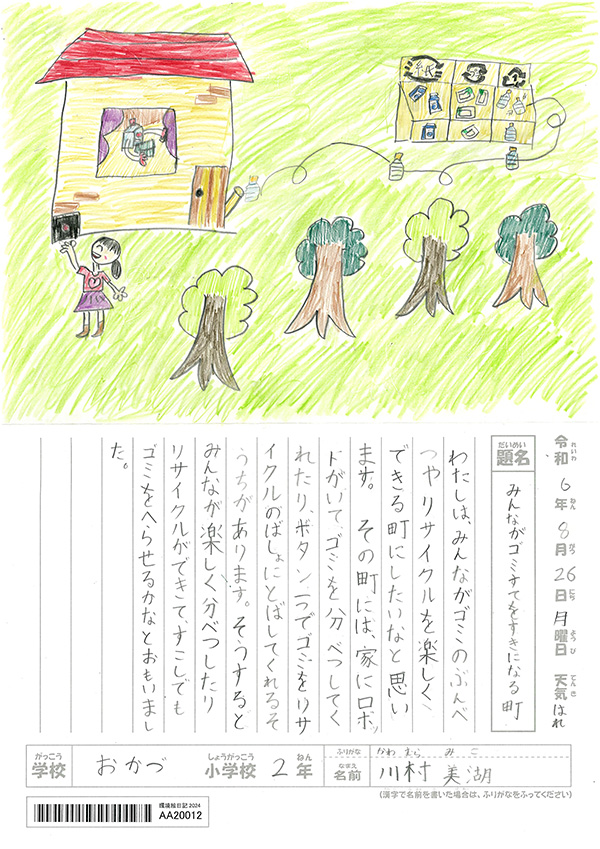 紙
令和6年8月26日月曜日 天気はれ
れいわ ねん がつ にち ようび てんき
だいめい
題名
みんながゴミすてをすきになる町
わたしは、みんながゴミのぶんべ
つやリサイクルを楽しく
できる町にしたいなと思い
ます。その町には、家にロボッ
トがいて、ゴミを分べつしてく
れたり、ボタン一つでゴミをリサ
イクルのばしょにとばしてくれるそ
うちがあります。そうすると
みんなが楽しく分べつしたり
リサイクルができて、すこしでも
ゴミをへらせるかなとおもいまし
た。
がっこう しょうがっこう ねん
学校 おかづ 小学校 2年
ふりがな かわむら みこ
なまえ
名前 川村 美湖
(漢字で名前を書いた場合は、ふりがなをふってください)
環境絵日記2024
AA20012